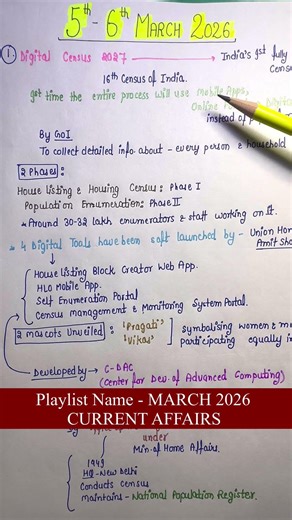 5th - 6th MARCH 2026
1. Digital Census 2027 → India's 1st fully
Census
16th Census of India.
1st time the entire process will use Mobile Apps,
Online
instead of
By GoI
To collect detailed info about - every person & household
2 Phases:
House Listing & Housing Census: Phase I
Population Enumeration: Phase II
Around 30-32 lakh enumerators & staff working on it.
4 Digital Tools have been soft launched by - Union Hom
Amit Sha
House Listing Block Creator Web App.
HLO Mobile App.
Self Enumeration Portal
Census management & Monitoring System Portal.
2 mascots Unveiled: 'Pragati'
'Vikas'
symbolising women & m
participating equally i
Developed by → C-DAC
(Center for Dev. of Advanced Computing)
Playlist Name - MARCH 2026
CURRENT AFFAIRS
under
Min. of Home Affairs.
1949
HQ - New Delhi
Conducts Census
Maintains - National Population Register.